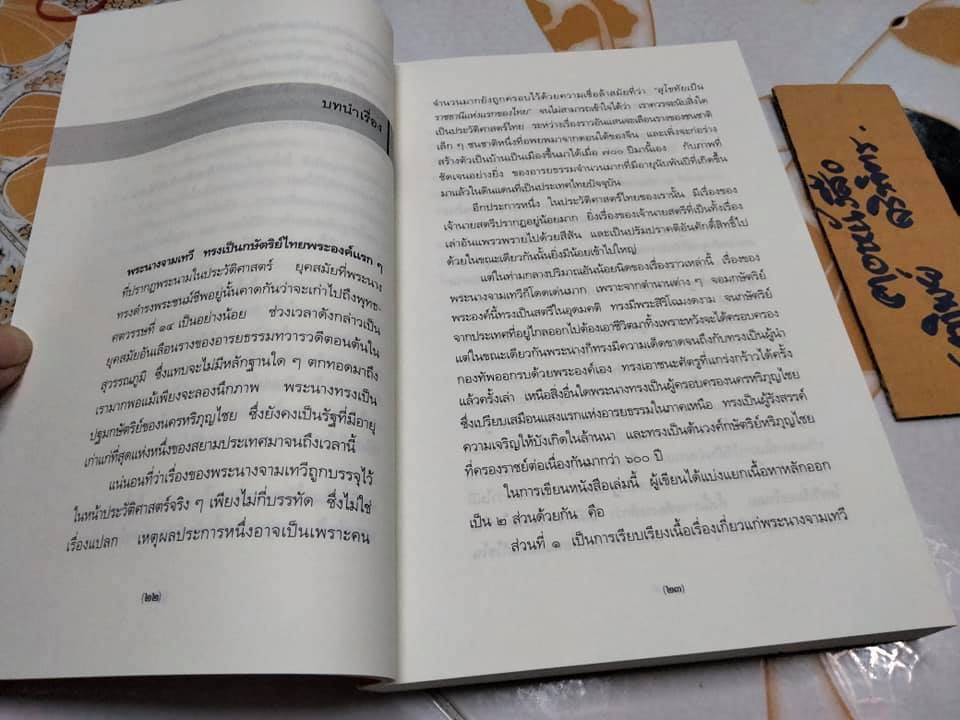 บทนำเรื่อง
พระนางจามเทวี ทรงเป็นกษัตริย์ไทยพระองค์แรก ๆ
ที่ปรากฏพระนามในประวัติศาสตร์ ยุคสมัยที่พระนาง
ทรงดำรงพระชนม์ชีพอยู่นั้นคาดกันว่าจะเก่าไปถึงพุทธ-
ศตวรรษที่ ๑๔ เป็นอย่างน้อย ช่วงเวลาดังกล่าวเป็น
ยุคสมัยอันเลือนรางของอารยธรรมทวารวดีตอนต้นใน
สุวรรณภูมิ ซึ่งแทบจะไม่มีหลักฐานใด ๆ ตกทอดมาถึง
เรามากพอแม้เพียงจะลองนึกภาพ พระนางทรงเป็น
ปฐมกษัตริย์ของนครหริภุญไชย ซึ่งยังคงเป็นรัฐที่มีอายุ
เก่าแก่ที่สุดแห่งหนึ่งของสยามประเทศมาจนถึงเวลานี้
แน่นอนที่ว่าเรื่องของพระนางจามเทวีถูกบรรจุไว้
ในหน้าประวัติศาสตร์จริง ๆ เพียงไม่กี่บรรทัด ซึ่งไม่ใช่
เรื่องแปลก เหตุผลประการหนึ่งอาจเป็นเพราะคน
(๒๒)
จำนวนมากยังถูกครอบไว้ด้วยความเชื่อล้าสมัยที่ว่า "สุโขทัยเป็น
ราชธานีแห่งแรกของไทย" จนไม่สามารถเข้าใจได้ว่า เราควรจะนับสิ่งใด
เป็นประวัติศาสตร์ไทย ระหว่างเรื่องราวอันแสนจะเลือนรางของชนชาติ
เล็ก ๆ ชนชาติหนึ่งที่อพยพมาจากตอนใต้ของจีน และเพิ่งจะก่อร่าง
สร้างตัวเป็นบ้านเป็นเมืองขึ้นมาได้เมื่อ ๗๐๐ ปีมานี้เอง กับภาพที่
ชัดเจนอย่างยิ่ง ของอารยธรรมจำนวนมากที่มีอายุนับพันปีที่เกิดขึ้น
มาแล้วในดินแดนที่เป็นประเทศไทยปัจจุบัน
อีกประการหนึ่ง ในประวัติศาสตร์ไทยของเรานั้น มีเรื่องของ
เจ้านายสตรีปรากฏอยู่น้อยมาก ยิ่งเรื่องของเจ้านายสตรีที่เป็นทั้งเรื่อง
เล่าอันแพรวพรายไปด้วยสีสัน และเป็นปรัมปราคติอันศักดิ์สิทธิ์ไป
ด้วยในขณะเดียวกันนั้นยิ่งมีน้อยเข้าไปใหญ่
แต่ในท่ามกลางปริมาณอันน้อยนิดของเรื่องราวเหล่านี้ เรื่องของ
พระนางจามเทวีก็โดดเด่นมาก เพราะจากตำนานต่าง ๆ จอมกษัตริย์
พระองค์นี้ทรงเป็นสตรีในอุดมคติ ทรงมีพระสิริโฉมงดงาม จนกษัตริย์
จากประเทศที่อยู่ไกลออกไปต้องเอาชีวิตมาทิ้งเพราะหวังจะได้ครอบครอง
แต่ในขณะเดียวกันพระนางก็ทรงมีความเด็ดขาดจนถึงกับทรงเป็นผู้นำ
กองทัพออกรบด้วยพระองค์เอง ทรงเอาชนะศัตรูที่แกร่งกร้าวได้ครั้ง
แล้วครั้งเล่า เหนือสิ่งอื่นใดพระนางทรงเป็นผู้ครอบครองนครหริภุญไชย
ซึ่งเปรียบเสมือนแสงแรกแห่งอารยธรรมในภาคเหนือ ทรงเป็นผู้รังสรรค์
ความเจริญให้บังเกิดในล้านนา และทรงเป็นต้นวงศ์กษัตริย์หริภุญไชย
ที่ครองราชย์ต่อเนื่องกันมากว่า ๖๐๐ ปี
ในการเขียนหนังสือเล่มนี้ ผู้เขียนได้แบ่งแยกเนื้อหาหลักออก
เป็น ๒ ส่วนด้วยกัน คือ
ส่วนที่ ๑ เป็นการเรียบเรียงเนื้อเรื่องเกี่ยวแก่พระนางจามเทวี
(๒๓)